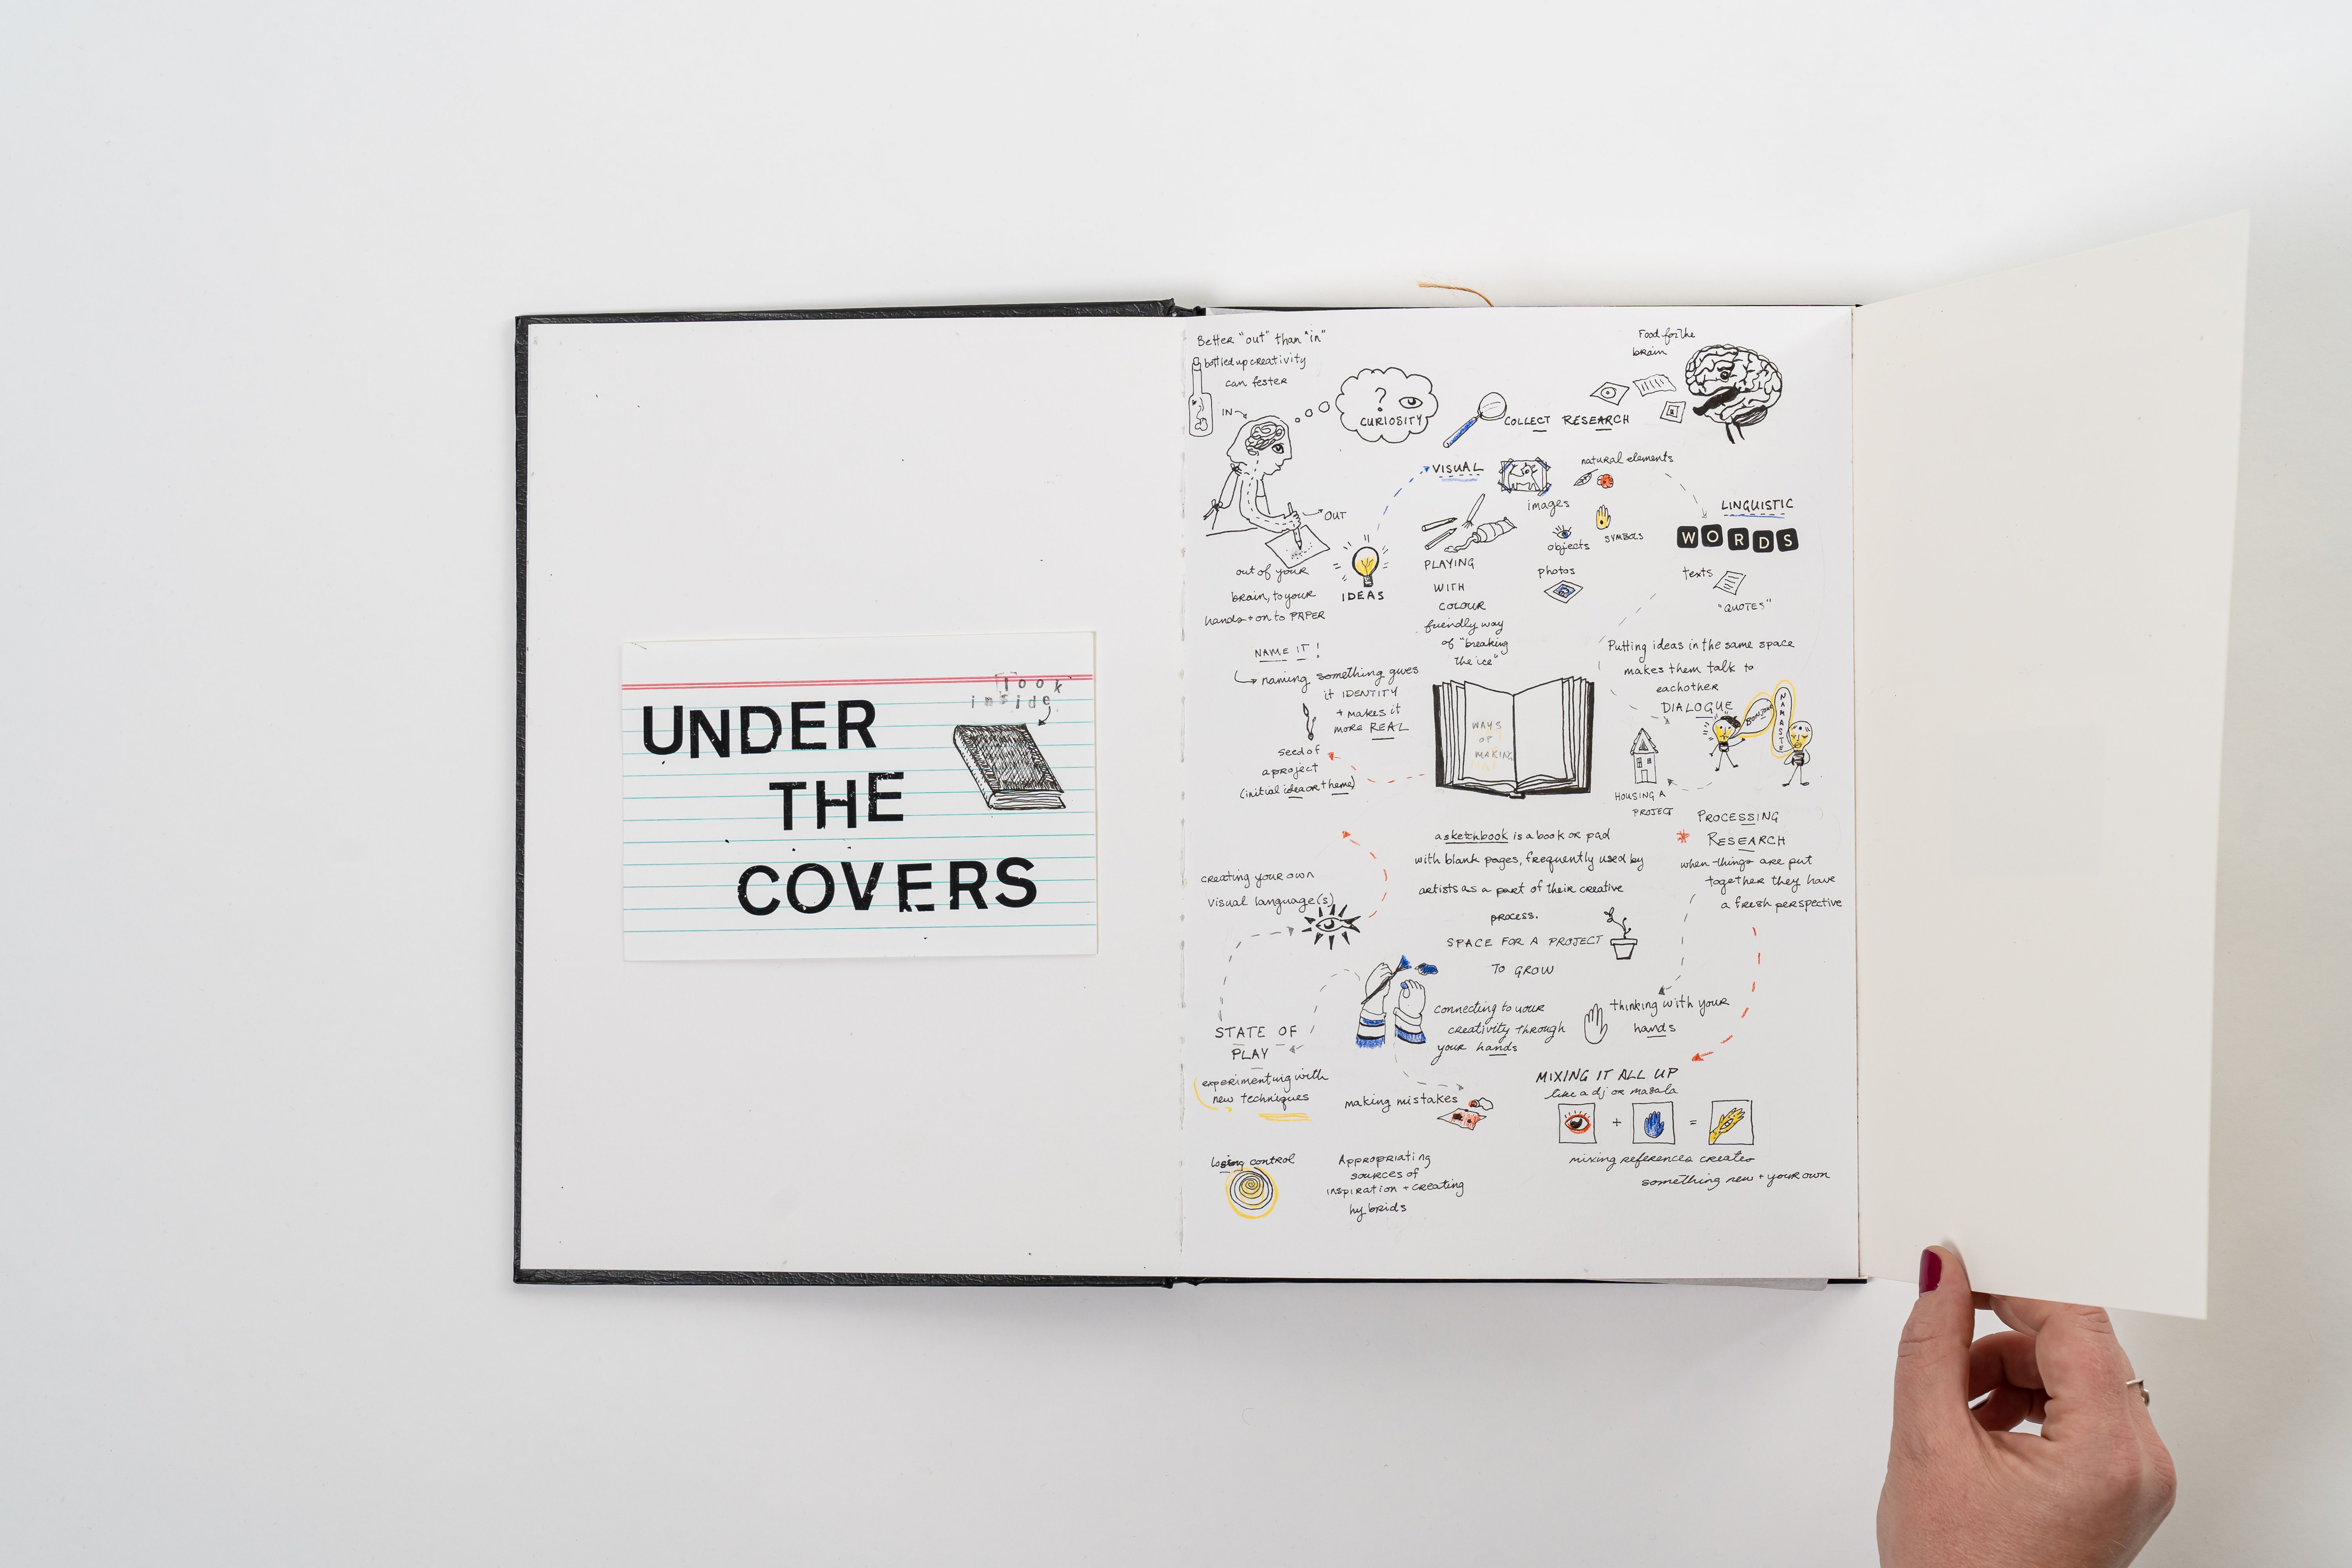 look
inside
UNDER
THE
COVERS
Better "out" than "in"
bottled up creativity
can fester
IN
? CURIOSITY
OUT
out of your
brain, to your
hands + on to PAPER
IDEAS
COLLECT RESEARCH
Food for the
brain
VISUAL
images
natural elements
objects
SYMBOLS
photos
PLAYING
WITH
COLOUR
friendly way
of "breaking
the ice"
LINGUISTIC
WORDS
texts
"QUOTES"
NAME IT!
naming something gives
it IDENTITY
+ makes it
more REAL
seed of
a project
(initial idea or theme)
WAYS
OF
MAKING
Putting ideas in the same space
makes them talk to
eachother
DIALOGUE
BONJOUR
NAMASTE
HOUSING A
PROJECT
PROCESSING
RESEARCH
when things are put
together they have
a fresh perspective
a sketchbook is a book or pad
with blank pages, frequently used by
artists as a part of their creative
process.
SPACE FOR A PROJECT
TO GROW
creating your own
visual language(s)
STATE OF
PLAY
experimenting with
new techniques
connecting to your
creativity through
your hands
thinking with your
hands
making mistakes
MIXING IT ALL UP
like a dj or masala
+ =
mixing references creates
something new + your own
losing control
Appropriating
sources of
inspiration + creating
hybrids